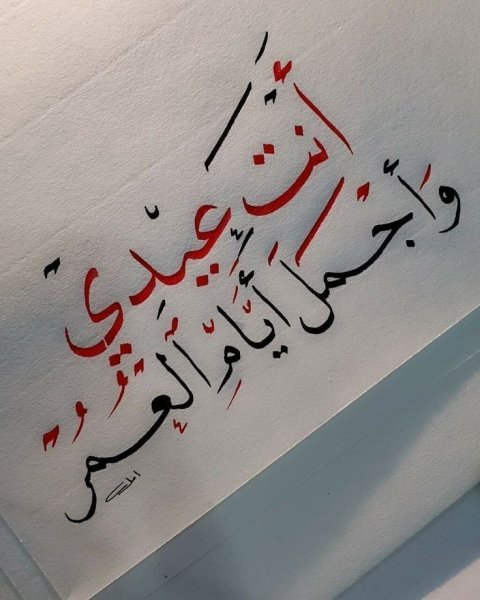 أنتَ عيدي
وَأجمل أيّامِ ٱلعمر